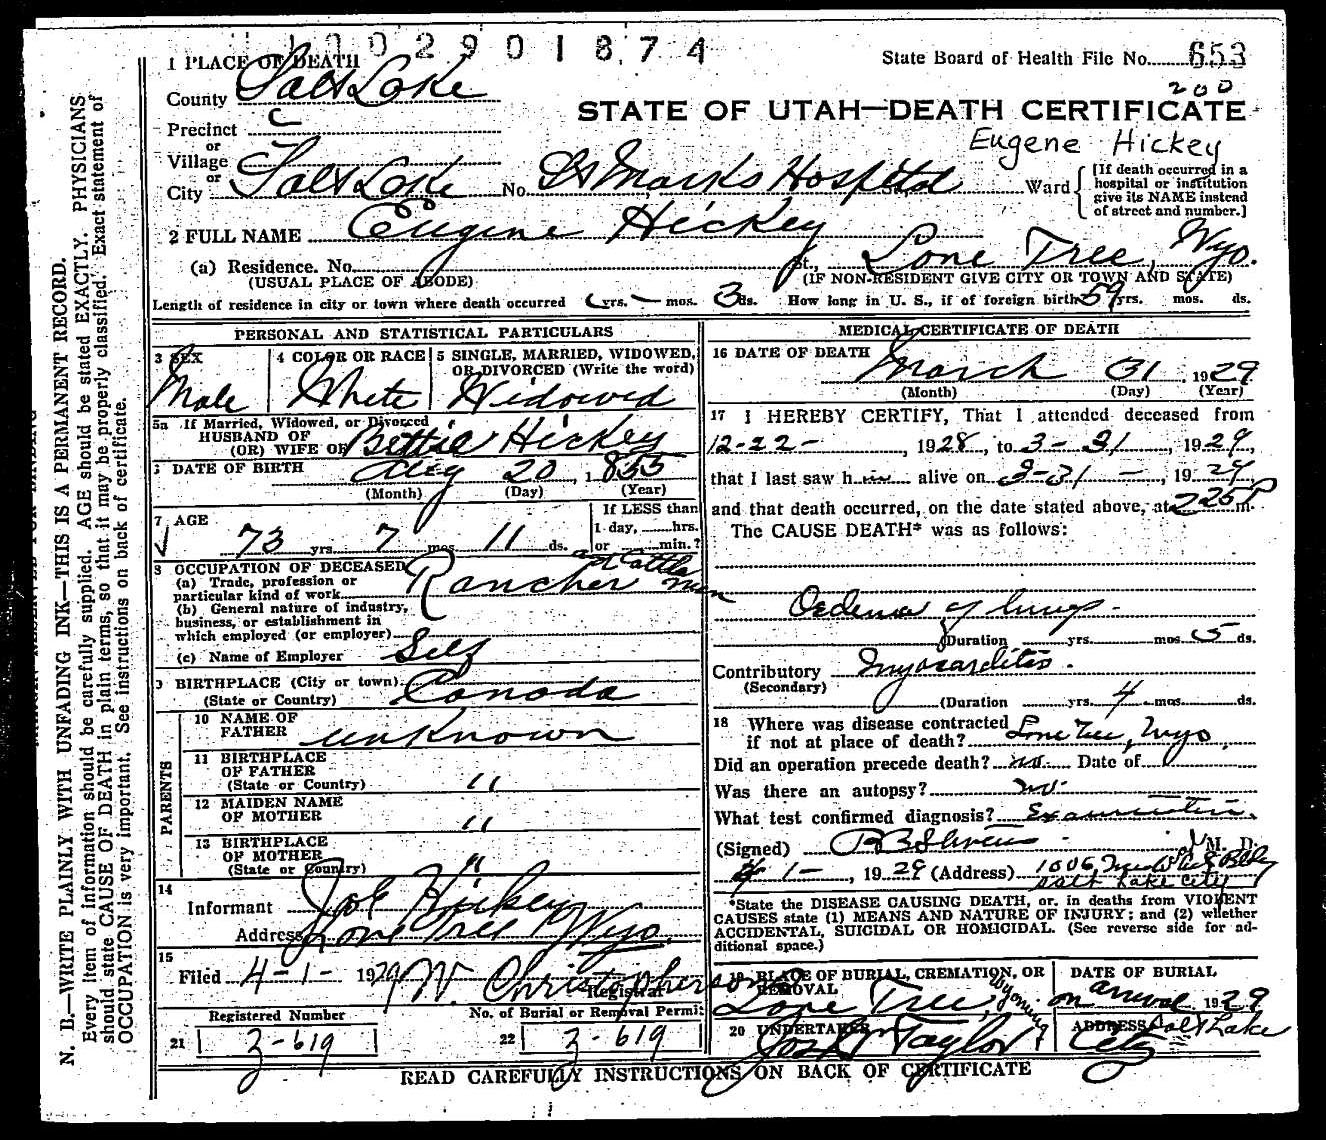 1002901874
State Board of Health File No. 653
200
1 PLACE OF DEATH
County Salt Lake
STATE OF UTAH—DEATH CERTIFICATE
Precinct
Eugene Hickey
or
Village
or
City Salt Lake No. St Marks Hospital Ward
[If death occurred in a
hospital or institution
give its NAME instead
of street and number.]
2 FULL NAME Eugene Hickey
(a) Residence. No. St., Lone Tree, Wyo.
(USUAL PLACE OF ABODE) (IF NON-RESIDENT GIVE CITY OR TOWN AND STATE)
Length of residence in city or town where death occurred yrs. — mos. 3 ds. How long in U. S., if of foreign birth 59 yrs. mos. ds.
PERSONAL AND STATISTICAL PARTICULARS
3 SEX 4 COLOR OR RACE 5 SINGLE, MARRIED, WIDOWED,
OR DIVORCED (Write the word)
Male White Widowed
5a If Married, Widowed, or Divorced
HUSBAND OF
(OR) WIFE OF Bettie Hickey
DATE OF BIRTH Aug 20, 1855
(Month) (Day) (Year)
7 AGE
If LESS than
1 day, hrs.
73 yrs. 7 mos. 11 ds. or min.?
8 OCCUPATION OF DECEASED
(a) Trade, profession or
particular kind of work Rancher and Cattle man
(b) General nature of industry,
business, or establishment in
which employed (or employer)
(c) Name of Employer Self
9 BIRTHPLACE (City or town)
(State or Country) Canada
PARENTS
10 NAME OF
FATHER unknown
11 BIRTHPLACE
OF FATHER
(State or Country) "
12 MAIDEN NAME
OF MOTHER "
13 BIRTHPLACE
OF MOTHER
(State or Country) "
14
Informant Joe Hickey
Address Lone Tree Wyo.
15
Filed 4-1- 1929 W. Christopherson
Registrar
Registered Number No. of Burial or Removal Permit
21 3-619 22 3-619
MEDICAL CERTIFICATE OF DEATH
16 DATE OF DEATH
March 31 1929
(Month) (Day) (Year)
17 I HEREBY CERTIFY, That I attended deceased from
12-22-, 1928, to 3-31, 1929,
that I last saw him alive on 3-31-, 1929
and that death occurred, on the date stated above, at 225 P m.
The CAUSE DEATH* was as follows:
Oedema of lungs.
(Duration yrs. mos. 5 ds.
Contributory Myocarditis.
(Secondary)
(Duration yrs. 4 mos. ds.
18 Where was disease contracted
if not at place of death? Lone Tree, Wyo.
Did an operation precede death? no Date of
Was there an autopsy? no.
What test confirmed diagnosis? Examination.
(Signed) M. D.
4-1-, 1929 (Address) 1006
Salt Lake City
*State the DISEASE CAUSING DEATH, or. in deaths from VIOLENT
CAUSES state (1) MEANS AND NATURE OF INJURY; and (2) whether
ACCIDENTAL, SUICIDAL OR HOMICIDAL. (See reverse side for ad-
ditional space.)
19 PLACE OF BURIAL, CREMATION, OR
REMOVAL
Lone Tree, Wyoming
DATE OF BURIAL
on arrival 1929
20 UNDERTAKER
Jos Wm Taylor
ADDRESS Salt Lake
City
READ CAREFULLY INSTRUCTIONS ON BACK OF CERTIFICATE
N. B.—WRITE PLAINLY WITH UNFADING INK—THIS IS A PERMANENT RECORD.
Every item of information should be carefully supplied. AGE should be stated EXACTLY. PHYSICIANS
should state CAUSE OF DEATH in plain terms, so that it may be properly classified. Exact statement of
OCCUPATION is very important. See instructions on back of certificate.